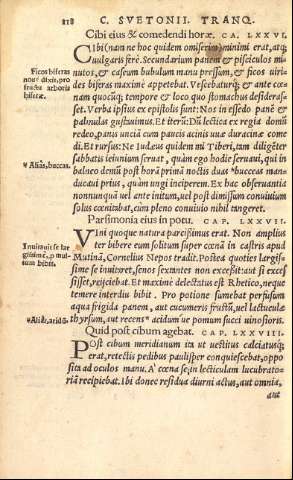 818 C. SVETONII. TRANQ.
Cibi eius & comedendi horæ. CA. LXXVI.
CIbi (nam ne hoc quidem omiserim) minimi erat, atq;
uulgaris ferè. Secundarium panem & pisciculos mi
nutos, & caseum bubulum manu pressum, & ficos uiri
des biferas maximè appetebat. Vescebaturq; & ante cœ
nam quocūq; tempore & loco quo stomachus desiderasset.
Verba ipsius ex epistolis sunt: Nos in essedo panē &
palmulas gustauimus. Et iterū: Dū lectica ex regia domū
redeo, panis unciā cum paucis acinis uuæ duracinæ come
di. Et rursus: Ne Iudæus quidem mi Tiberi, tam diligēter
sabbatis ieiunium seruat, quàm ego hodie seruaui, qui in
balneo demū post horā primā noctis duas *bucceas man-
ducaui prius, quàm ungi inciperem. Ex hac obseruantia
nonnunquā uel ante initum, uel post dimissum conuiuium
solus cœnitabat, cùm pleno conuiuio nihil tangeret.
Ficos biferas
Aliàs, buccas.
Parsimonia eius in potu. CAP. LXXVII.
VIni quoque natura parcissimus erat. Non amplius
ter bibere eum solitum super cœnā in castris apud
Mutinā, Cornelius Nepos tradit. Postea quoties largis-
sime se inuitaret, senos sextantes non excessit: aut si exces
sisset, reijciebat. Et maximè delectatus est Rhetico, neque
temere interdiu bibit. Pro potione sumebat perfusum
aqua frigida panem, aut cucumeris frustū, uel lactuculæ
thyrsum, aut recens* aciduḿue pomum succi uinosioris.
Quid post cibum agebat. CAP. LXXVIII.
POst cibum meridianum ita ut uestitus calciatusq;
erat, retectis pedibus paulisper conquiescebat, oppo
sita ad oculos manu. A' cœna se in lecticulam lucubrato-
riā recipiebat. Ibi donec residua diurni actus, aut omnia,
aut